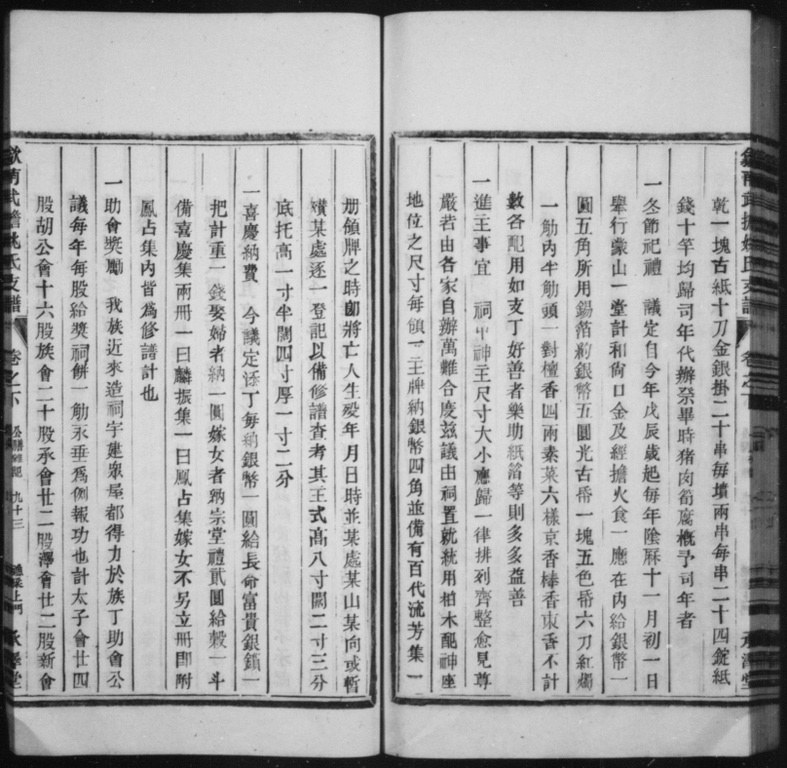 乾一塊古紙十刀金銀掛二十串每墳兩串每串二十四錠紙
錢十竿均歸司年代辦祭畢時猪肉筍腐概予司年者
一冬節祀禮　議定自今年戊辰歲起每年陰厤十一月初一日
舉行蒙山一堂計和尙口金及經擔火食一應在內給銀幣一
圓五角所用錫箔約銀幣五圓光古番一塊五色番六刀紅燭
一觔內半觔頭一對檀香四兩素菜六樣京香棒香東香不計
數各配用如支丁好善者樂助紙箔等則多多益善
一進主事宜　祠中神主尺寸大小應歸一律排列齊整愈見尊
嚴若由各家自辦萬難合度兹議由祠置就統用柏木配神座
地位之尺寸每領一主牌納銀幣四角並備有百代流芳集一
册領牌之時卽將亡人生歿年月日時並某處某山某向或暫
殯某處逐一登記以備修譜查考其主式高八寸闊二寸三分
底托高一寸半闊四寸厚一寸二分
一喜慶納費　今議定添丁每納銀幣一圓給長命富貴銀鎖一
把計重一錢娶婦者納一圓嫁女者納宗堂禮貳圓給穀一斗
備喜慶集兩冊一曰麟振集一曰鳳占集嫁女不另立冊卽附
鳳占集內皆爲修譜計也
一助會獎勵　我族近來造祠宇建衆屋都得力於族丁助會公
議每年每股給獎祠餅一觔永垂爲例報功也計太子會廿四
股胡公會十六股族會二十股承會廿二股澤會廿二股新會
姚氏支譜
卷之下
九十三
承澤堂